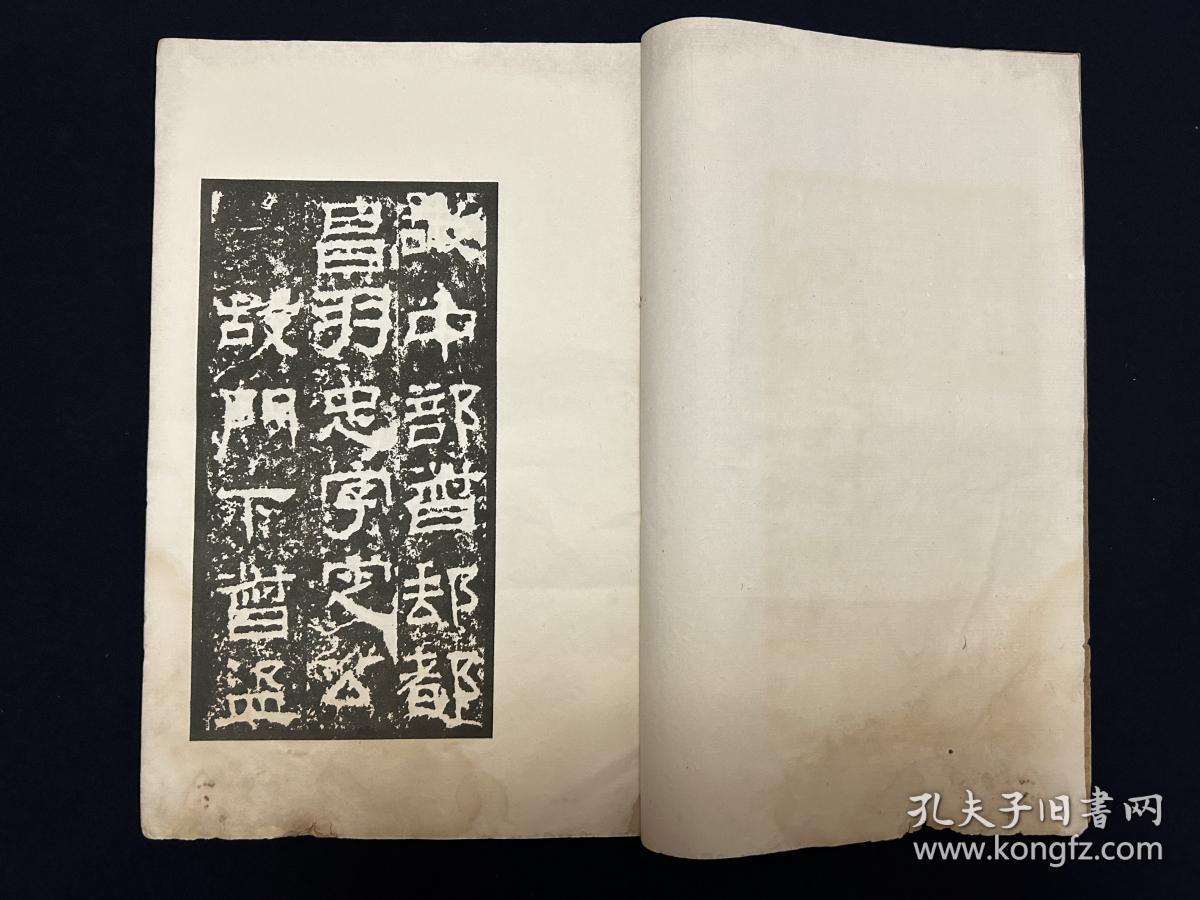 故中部督邮都
昌羽忠字定公
故門下督盜
孔夫子旧書网
www.kongfz.com